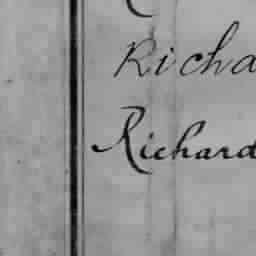 Richa
Richard